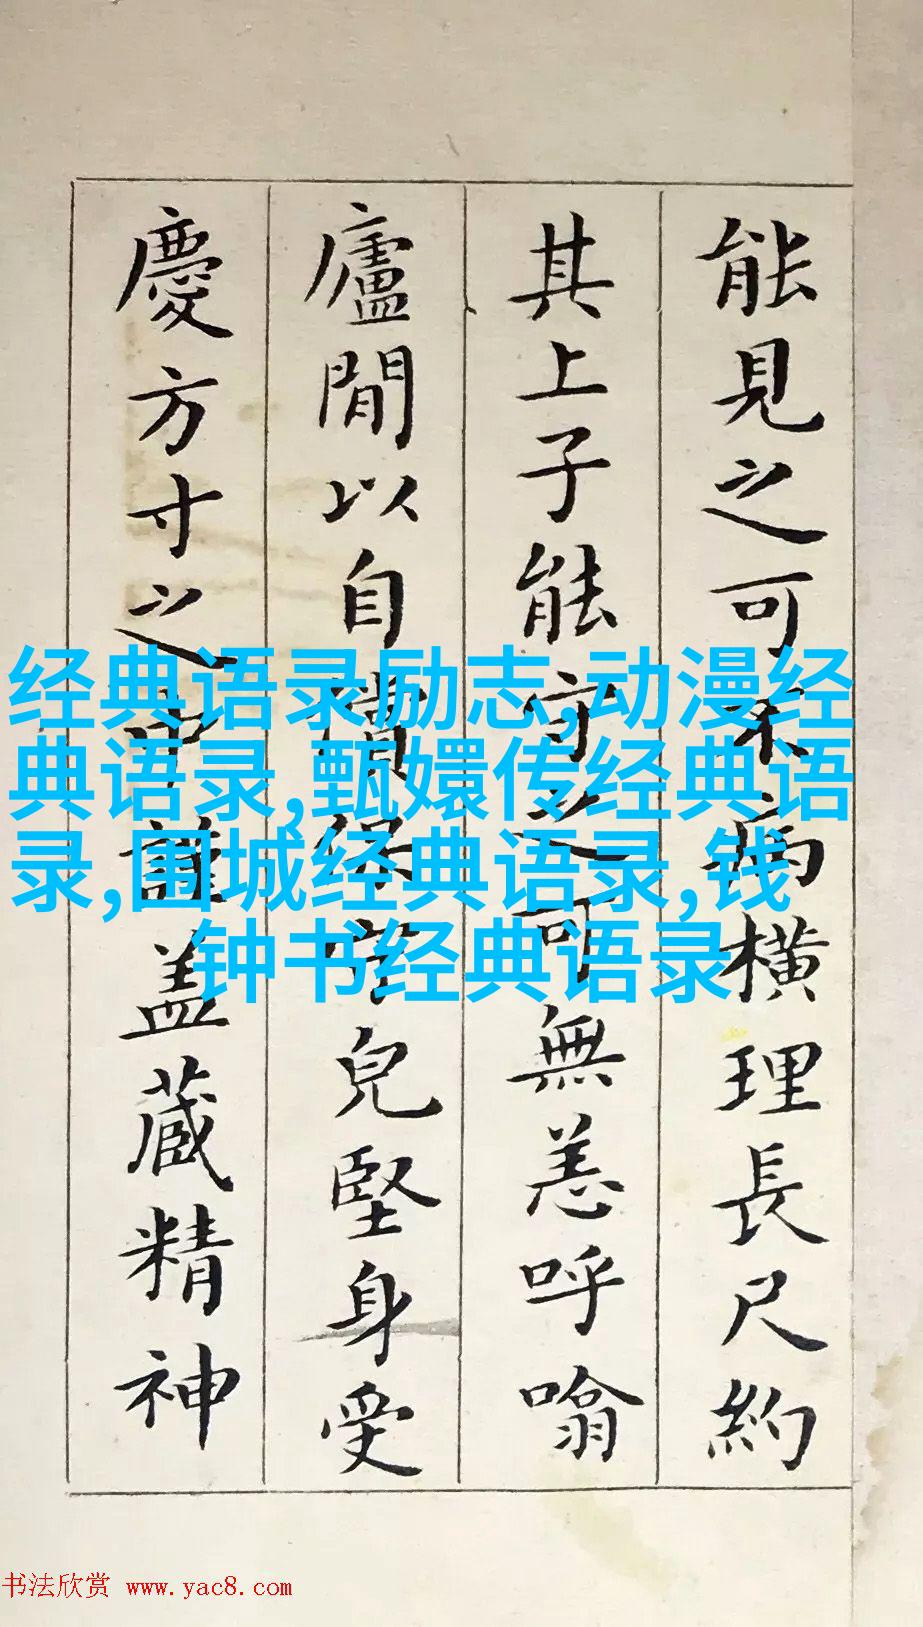 能見之可不病橫理長尺約
其上子能守之可無恙呼噏
廬閒以自償保守兒堅身受
慶方寸之中謹盖藏精神
经典语录励志,动漫经
典语录,甄嬛传经典语
录,围城经典语录,钱
钟书经典语录
书法欣赏 www.yac8.com